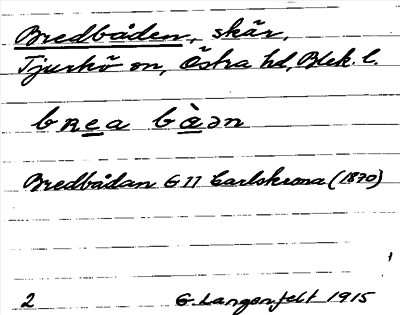 Bredbåden, skär,
Tjurkö sn, Östra hd, Blek. l.
bʀea bàən
Bredbådan G 11 Carlskrona (1870)
2 G. Langenfelt 1915